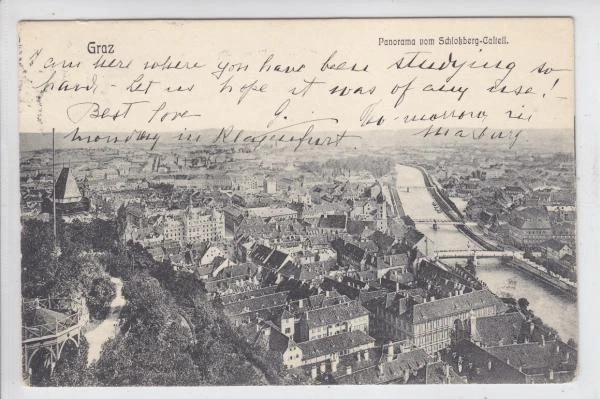 Graz
Panorama vom Schloßberg-Castell.
I am here where you have been studying so
hard - Let us hope it was of any use! -
Best love G. To-morrow in
monday in Klagenfurt Marburg